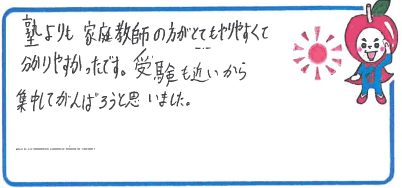 塾よりも 家庭教師の方がとてもやりやすくて
分かりやすかったです。受験も近いから
集中してがんばろうと思いました。